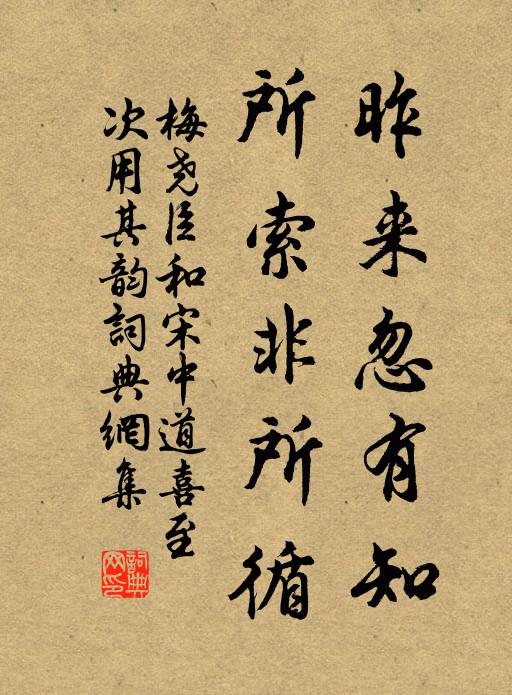 昨来忽有知
所索非所循
梅尧臣和宋中道喜至
次用其韵詞典網集
詞典
网印